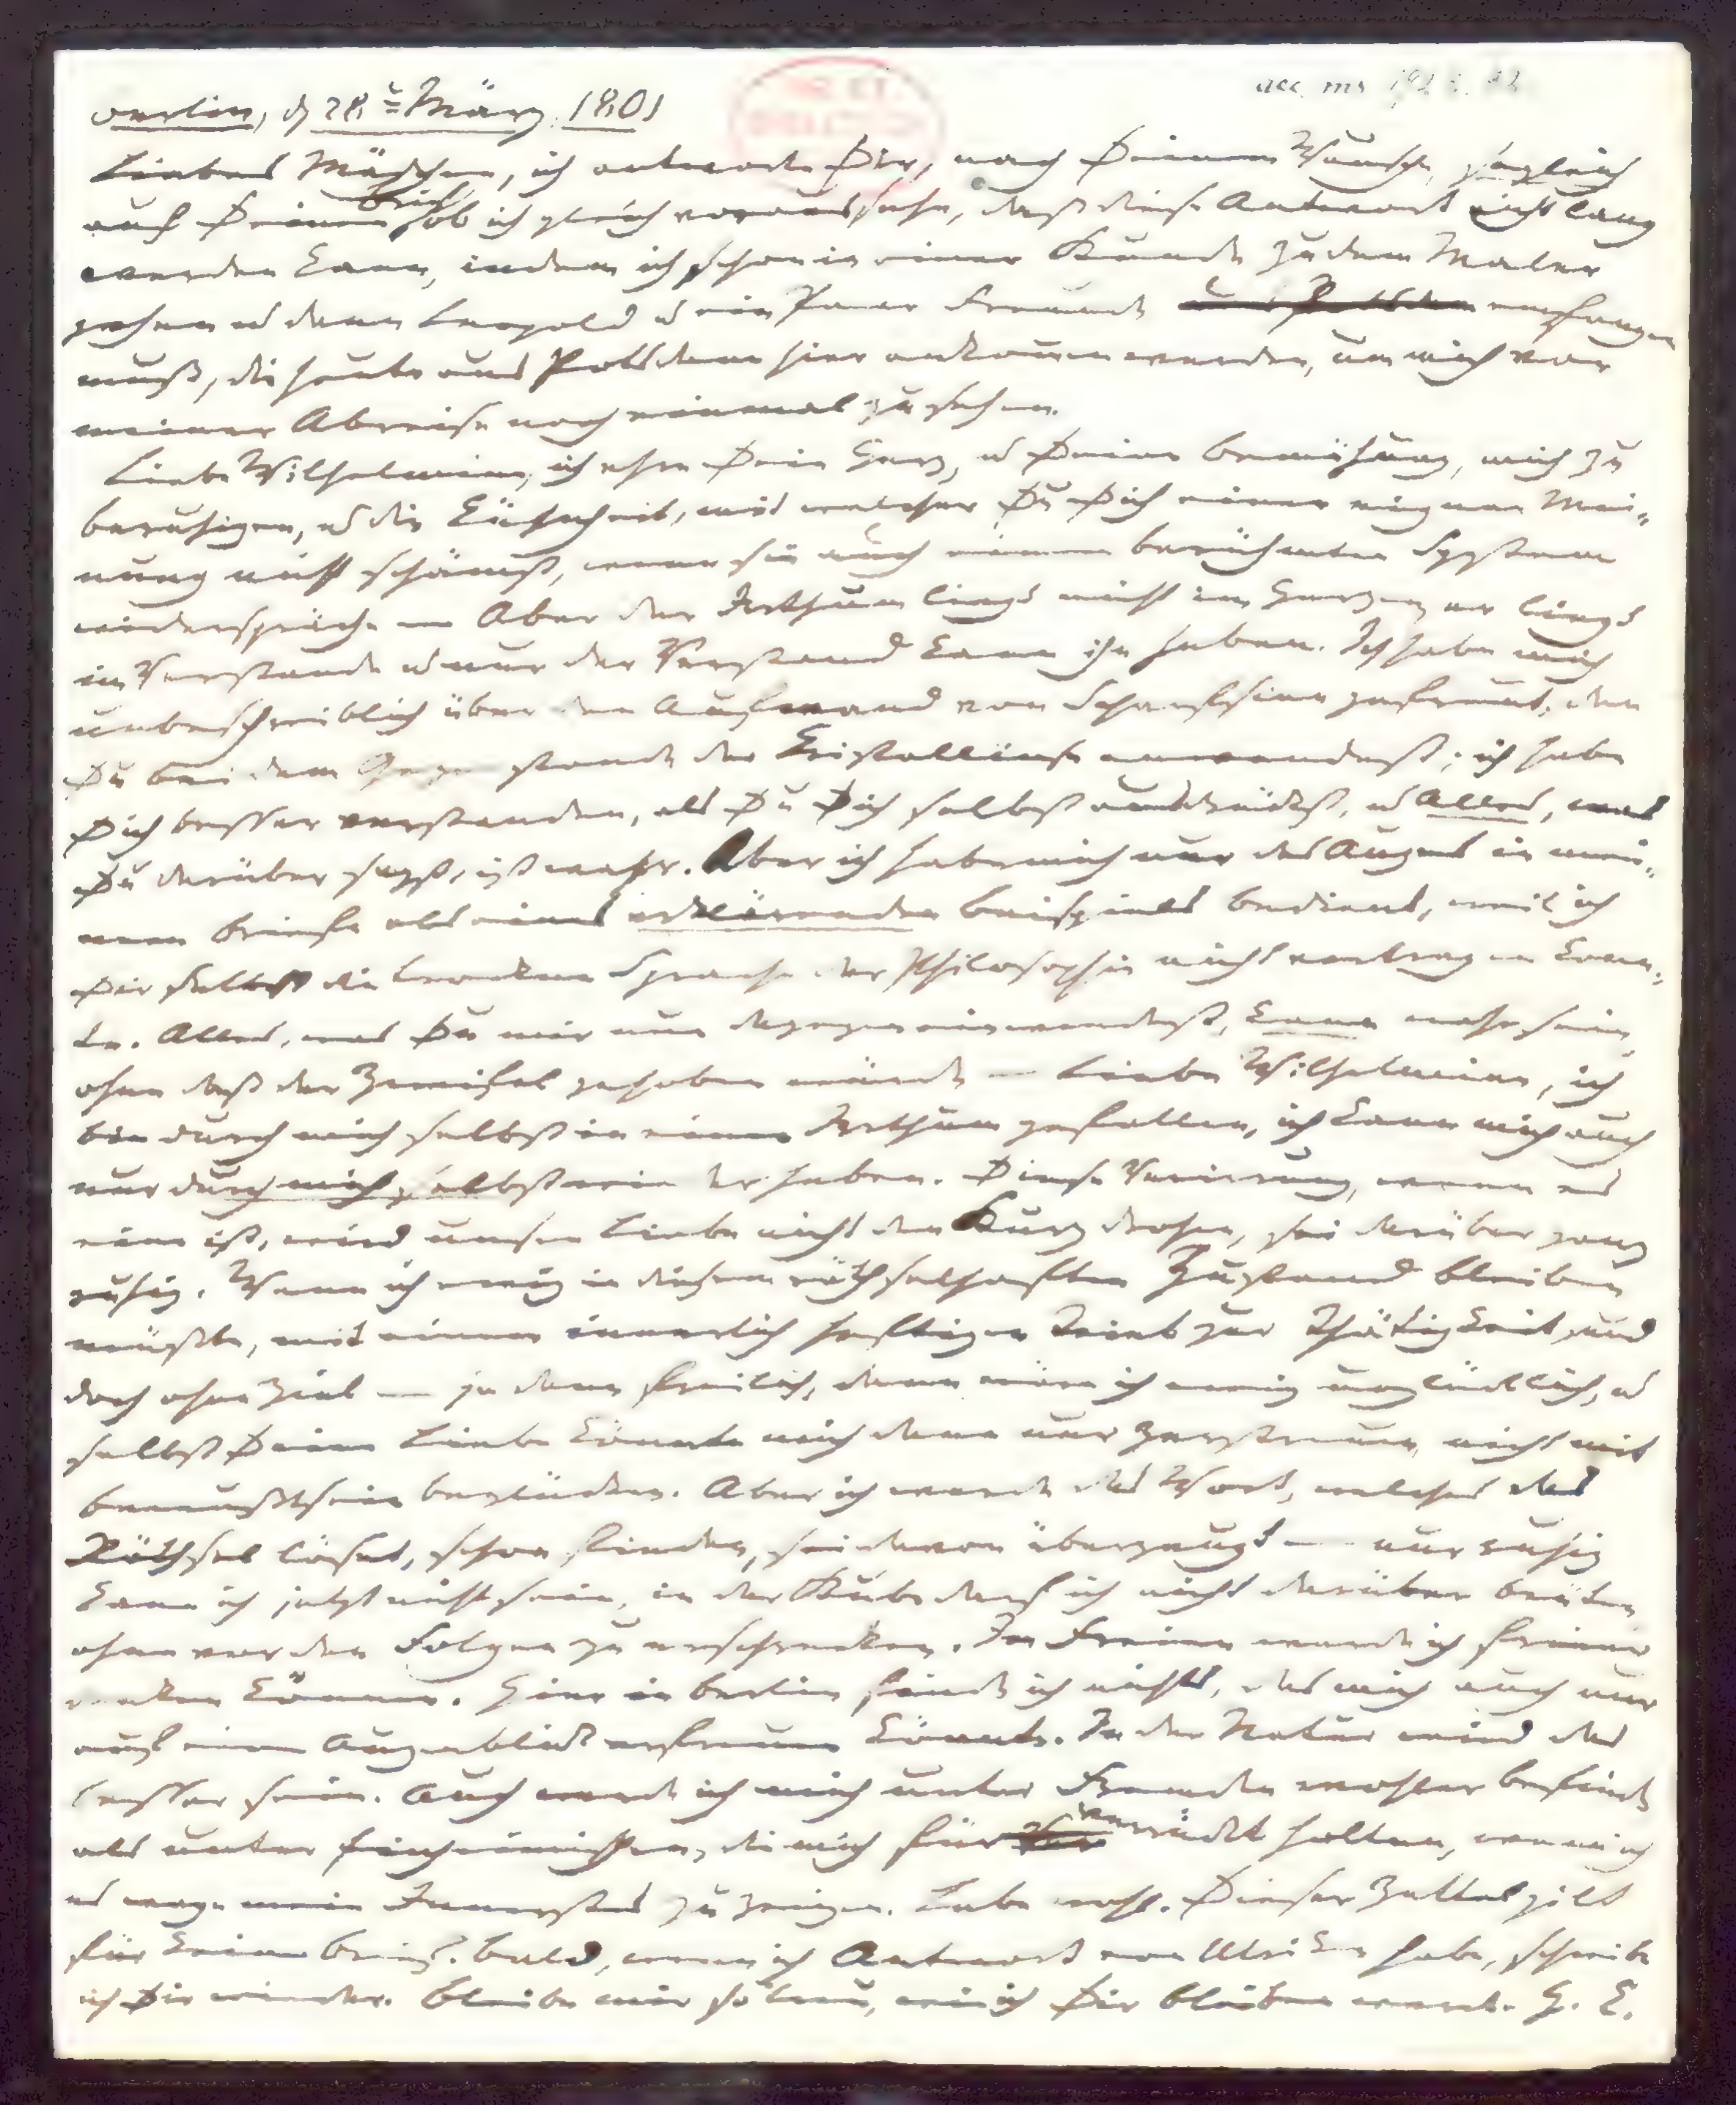 acc. ms.
Berlin, d 28t März, 1801
Liebes Mädchen, ich antworte Dir, nach Deinem Wunsche, sogleich
auf Deinen Brief, ob ich gleich voraussehe, daß diese Antwort nicht lang
werden kann, indem ich schon in einer Stunde zu dem Maler
gehen u dann Leopold u ein Paar Freunde empfangen
muß, die heute aus Potsdam hier ankommen werden, um mich vor
meiner Abreise noch einmal zu sehen.
Liebe Wilhelmine, ich ehre Dein Herz, u Deine Bemühung, mich zu
beruhigen, u die Kühnheit, mit welcher Du Dich einer eignen Mei-
nung nicht schämst, wenn sie auch einem berühmten System
widerspräche — Aber der Irrthum liegt nicht im Herzen, er liegt
im Verstande u nur der Verstand kann ihn heben. Ich habe mich
unbeschreiblich über den Aufwand von Scharfsinn gefreut, den
Du bei dem Gegenstande der Kristallinse anwendest; ich habe
Dich besser verstanden, als Du Dich selbst ausdrückst, u Alles, was
Du darüber sagst, ist wahr. Aber ich habe mich nur des Auges in mei-
nem Briefe als eines erklärenden Beispiels bedient, weil ich
Dir selbst die trockne Sprache der Philosophie nicht vortragen konn-
te. Alles, was Du mir nun dagegen einwendest, kann wahr sein,
ohne daß der Zweifel gehoben würde — Liebe Wilhelmine, ich
bin durch mich selbst in einen Irrthum gefallen, ich kann mich auch
nur durch mich selbst wieder heben. Diese Verirrung, wenn es
eine ist, wird unsrer Liebe nicht den Sturz drohen, sei darüber ganz
ruhig. Wenn ich ewig in diesem räthselhaften Zustand bleiben
müßte, mit einem innerlich heftigen Trieb zur Thätigkeit, und
doch ohne Ziel — ja dann freilich, dann wäre ich ewig unglücklich, u
selbst Deine Liebe könnte mich dann nur zerstreuen, nicht mit
Bewußtsein beglücken. Aber ich werde das Wort, welches das
Räthsel löset, schon finden, sei davon überzeugt — nur ruhig
kann ich jetzt nicht sein, in der Stube darf ich nicht darüber brüten,
ohne vor den Folgen zu erschrecken. Im Freien werde ich freier
denken können. Hier in Berlin finde ich nichts, das mich auch nur
auf einen Augenblick erfreuen könnte. In der Natur wird das
besser sein. Auch werde ich mich unter Fremden wohler befinden,
als unter Einheimischen, die mich für verrückt halten, wenn ich
es wage mein Innerstes zu zeigen. Lebe wohl. Dieser Zettel gilt
für keinen Brief. Bald, wenn ich Antwort von Ulriken habe, schreibe
ich Dir wieder. Bleibe mir so treu, wie ich Dir bleiben werde. H. K.